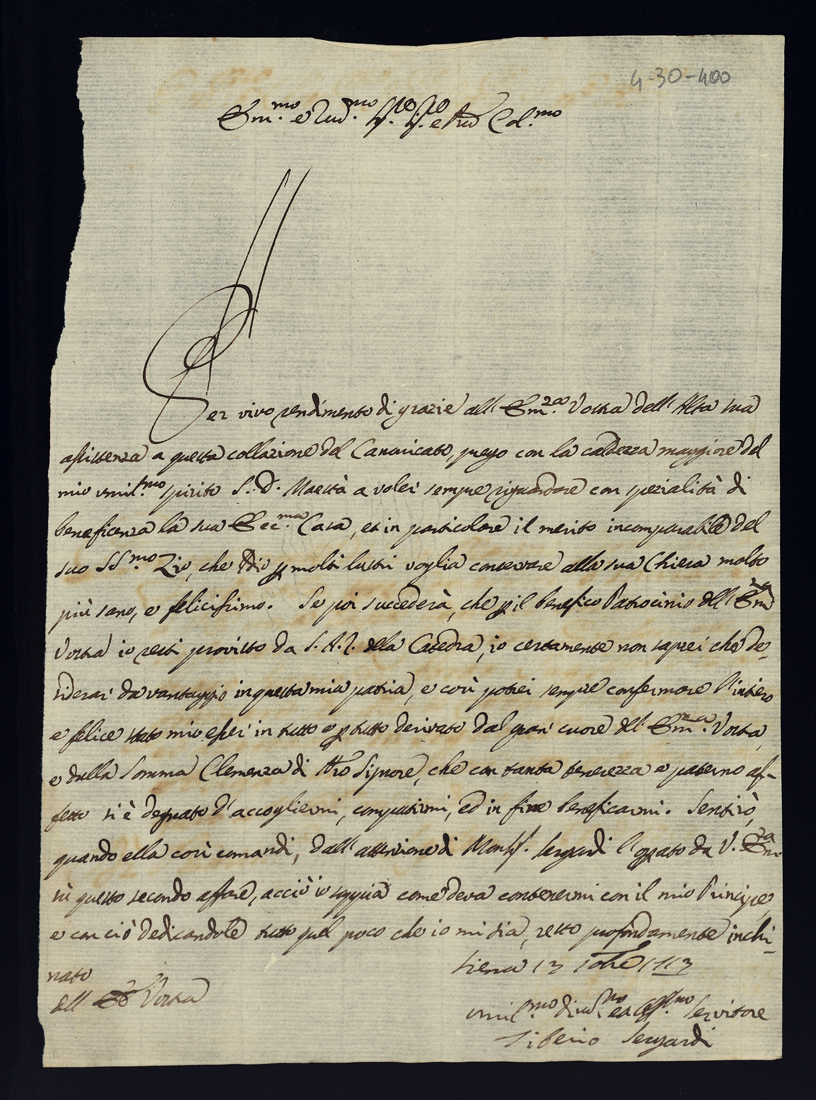 4-30-400
Em.mo e Rev.mo Sig.re Sig.re e Pron Col.mo
Per vivo rendimento di grazie all' Em.za Vostra dell' Alta sua
assistenza a questa collazione del Canonicato, prego con la caldezza maggiore del
mio umil.mo spirito S. D. Maestà a voler sempre riguardare con spezialità di
beneficenza la sua Ecc.ma Casa, et in particolare il merito incomparabile del
suo SS.mo Zio, che Iddio p molti lustri voglia conservare alla sua Chiesa molto
più sano, e felicissimo. Se poi succederà, che p il benefico Patrocinio dell' Em.za
Vostra io resti provisto da S. A. R. della Catedra, io certamente non saprei che de-
siderar' da vantaggio in questa mia patria, e così potrei sempre confermare l'intiero
e felice stato mio esser' in tutto e p tutto derivato dal gran' cuore dell' Em.za Vostra,
e dalla somma Clemenza di Nro Signore, che con tanta tenerezza e paterno af-
fetto si è degnato d'accogliermi, compatirmi, ed in fine beneficarmi. Sentirò,
quando ella così comandi, dall' attenzione di Mons. Sergardi l' oprato da V. Em.za
in questo secondo affare, acciò io sappia come deva contenermi con il mio Principe,
e con ciò dedicandole tutto quel poco che io mi sia, resto profondamente inchi-
nato
Siena 13 1713
dell' Vostra
umil.mo div.mo ed obblig.mo Servitore
Tiberio Sergardi